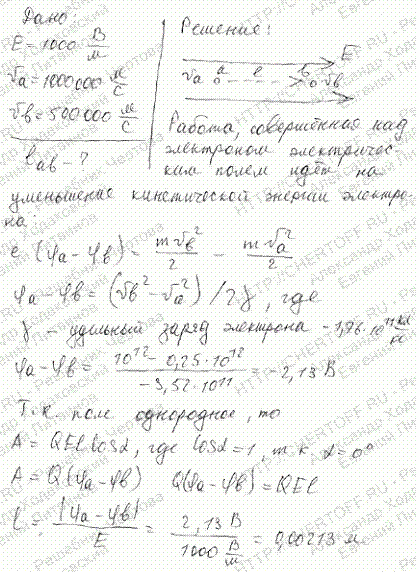 Дано:
E = 1000 В/м
υa = 1000000 м/с
υb = 500000 м/с
lab - ?
Решение:
E
υa a e b υb
Работа, совершённая над
электроном электричес-
ким полем идёт на
уменьшение кинетической энергии электро-
на:
e (φa - φb) = mυb²/2 - mυa²/2
φa - φb = (υb² - υa²) / 2γ, где
γ - удельный заряд электрона - 1,76·10¹¹ Кл/кг
φa - φb = (10¹² - 0,25·10¹²)/(-3,52·10¹¹) = -2,13 В
Т.к. поле однородное, то
A = QEl cosα, где cosα = 1, т.к. α = 0°
A = Q(φa - φb) Q(φa - φb) = QEl
l = |φa - φb|/E = 2,13 В/1000 В/м = 0,00213 м